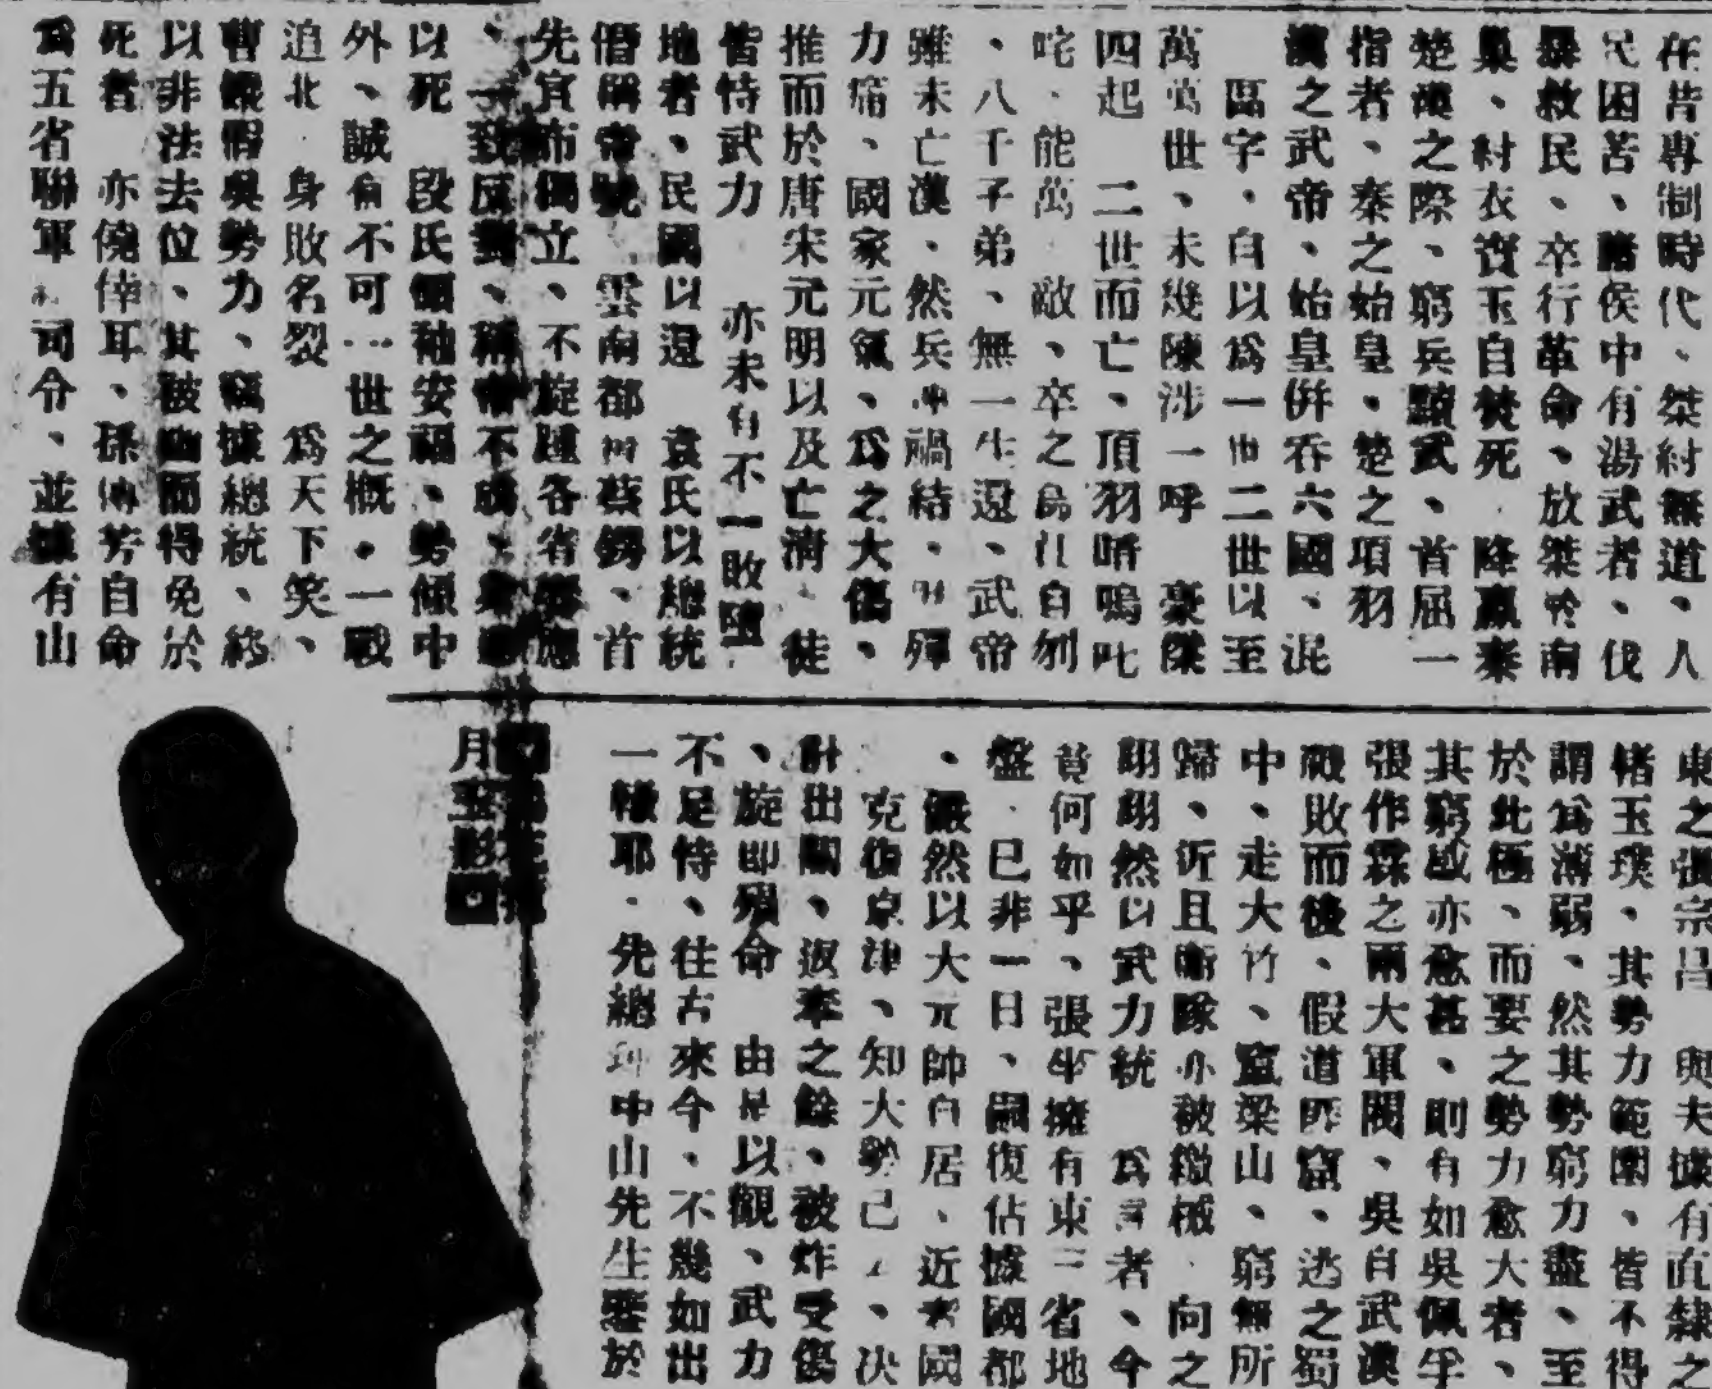 在昔專制時代、桀紂無道、人
民困苦、諸侯中有湯武者、伐
暴救民、卒行革命、放桀於南
巢、紂衣寶玉自焚死 降嬴秦
楚漢之際、窮兵黷武、首屈一
指者、秦之始皇、楚之項羽
漢之武帝、始皇併吞六國、混
區宇、自以爲一世二世以至
萬萬世、未幾陳涉一呼 豪傑
四起 二世而亡、項羽喑嗚叱
咤、能萬 敵、卒之烏江自刎
、八千子弟、無一生還、武帝
雖未亡漢、然兵連禍結、財殫
力痛、國家元氣、爲之大傷、
推而於唐宋元明以及亡淸、徒
皆恃武力 亦未有不一敗墮
地者、民國以還 袁氏以總統
僭稱帝號 雲南都督蔡鍔、首
先宣布獨立、不旋踵各省響應
、一致反對、稱帝不成、
以死 段氏領袖安福、勢傾中
外、誠有不可一世之概。一戰
追北 身敗名裂 爲天下笑、
曹錕假吳勢力、竊據總統、終
以非法去位、其被幽而得免於
死者 亦僥倖耳、孫傳芳自命
爲五省聯軍總司令、並據有山
東之張宗昌 與夫據有直隸之
褚玉璞、其勢力範圍、皆不得
謂爲薄弱、然其勢窮力盡、至
於此極、而要之勢力愈大者、
其窮蹙亦愈甚、則有如吳佩孚
張作霖之兩大軍閥、吳自武漢
敗而後、假道 窟、逃之蜀
中、走大竹、竄梁山、窮無所
歸、近且衛隊亦被繳械 向之
翊翊然以武力統 爲言者、今
竟何如乎、張坐擁有東三省地
盤 已非一日、嗣復佔據國都
、儼然以大元帥自居、近 國
克復京津、知大勢已去、决
計出關、返奉之餘、被炸受傷
、旋即殞命 由是以觀、武力
不足恃、往古來今、不幾如出
一轍耶 先總理中山先生 於